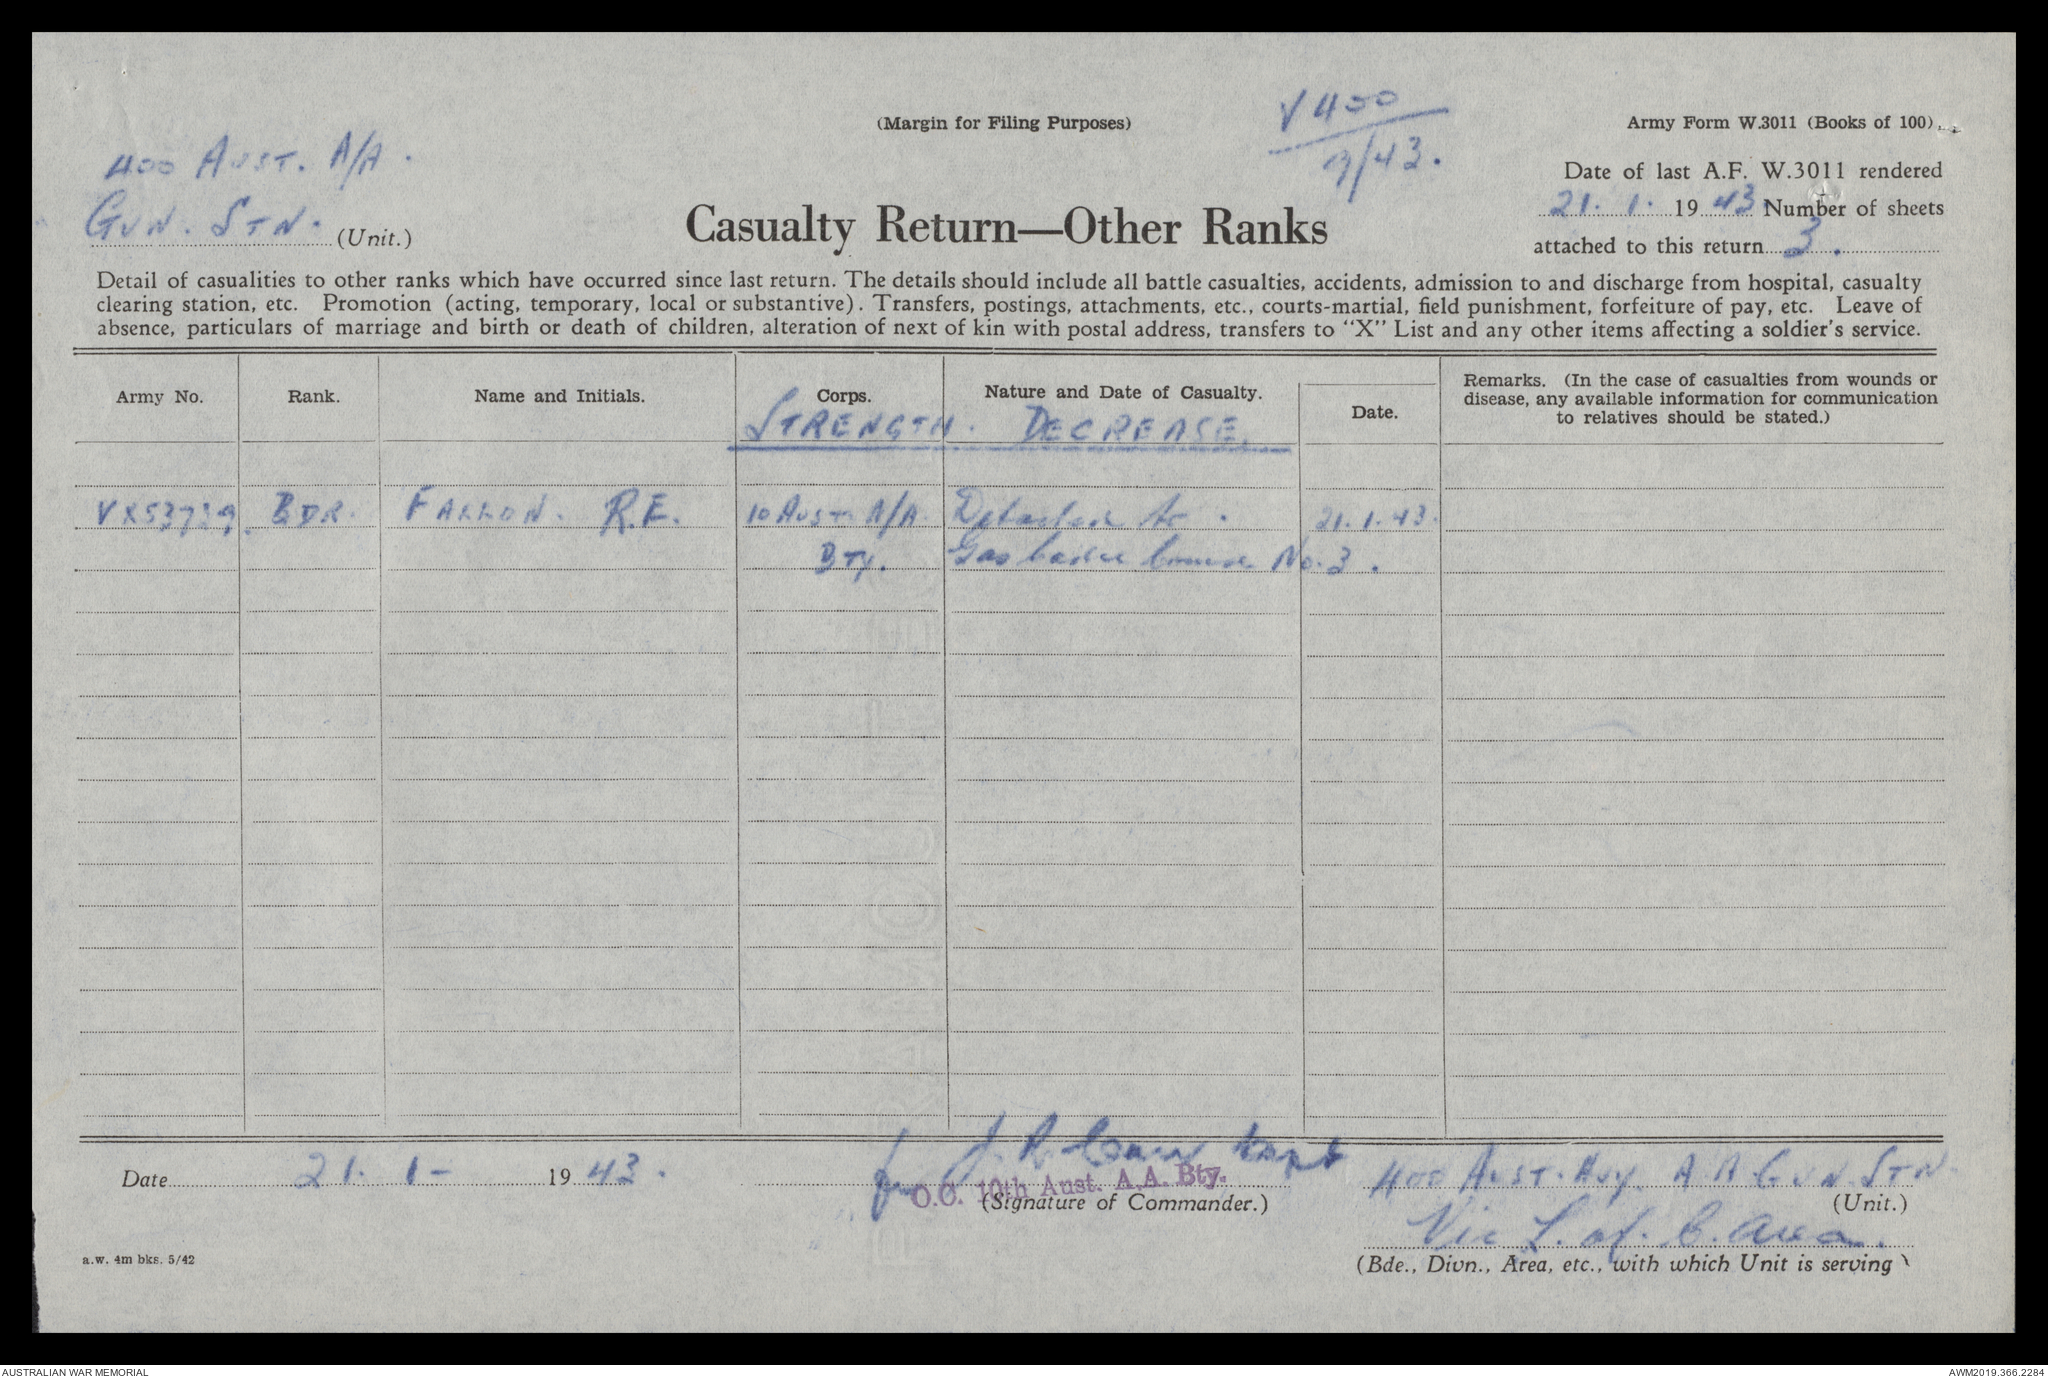 (Margin for Filing Purposes)
V400
/43.
Army Form W.3011 (Books of 100)
400 AUST. A/A.
GUN. STN.
(Unit.)
Casualty Return—Other Ranks
Date of last A.F. W.3011 rendered
21. 1. 19 43. Number of sheets
attached to this return 3.
Detail of casualities to other ranks which have occurred since last return. The details should include all battle casualties, accidents, admission to and discharge from hospital, casualty
clearing station, etc. Promotion (acting, temporary, local or substantive). Transfers, postings, attachments, etc., courts-martial, field punishment, forfeiture of pay, etc. Leave of
absence, particulars of marriage and birth or death of children, alteration of next of kin with postal address, transfers to "X" List and any other items affecting a soldier's service.
Army No. Rank. Name and Initials. Corps. Nature and Date of Casualty. Date. Remarks. (In the case of casualties from wounds or
disease, any available information for communication
to relatives should be stated.)
STRENGTH. DECREASE.
VX53739. BDR. FALLON. R.E. 10 AUST. A/A. Detached to. 21.1.43.
BTY. Gas Course No. 3.
Date 21. 1- 19 43.
for J. R. Capt
O.C. 10th Aust. A.A. Bty.
(Signature of Commander.)
400 AUST. HVY. A A GUN. STN.
(Unit.)
Vic L. of. C. Area.
(Bde., Divn., Area, etc., with which Unit is serving)
a.w. 4m bks. 5/42
AUSTRALIAN WAR MEMORIAL
AWM2019.366.2284